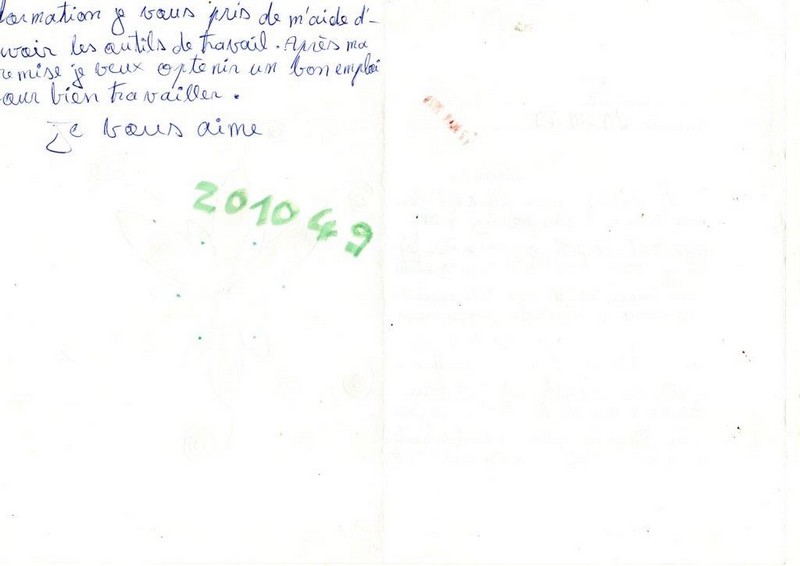 formation je vous pris de m'aide d'-
avoir les outils de travail. Après ma
remise je veux optenir un bon emploi
pour bien travailler.
Je vous aime
201049